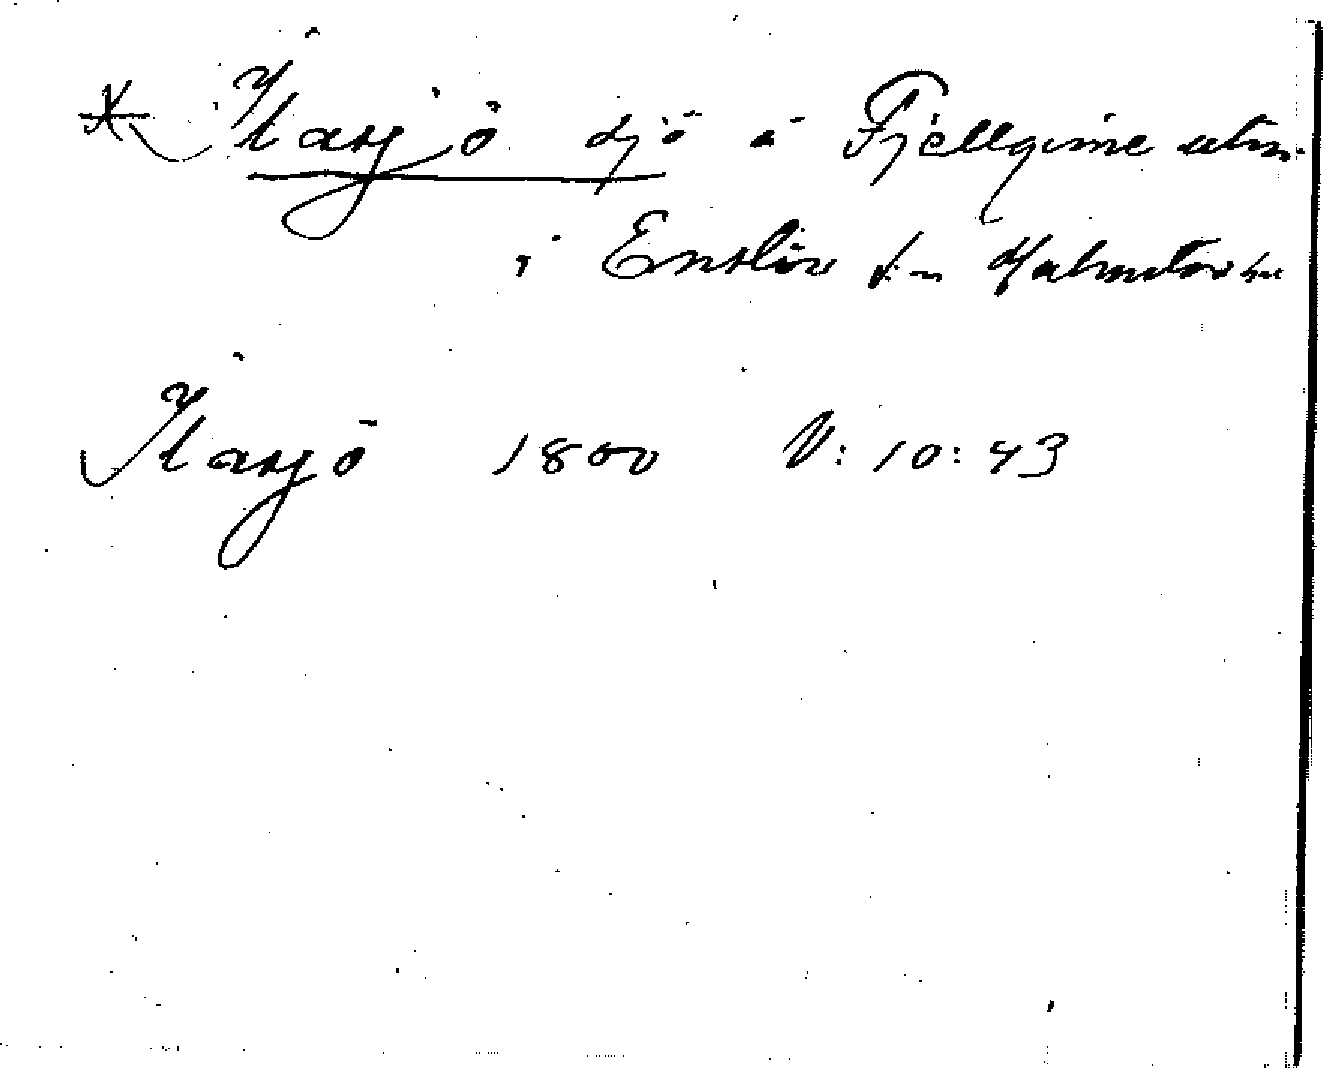 * Åtasjö sjö å Fjellgime utm.
i Enslöv sn Halmstads hd
Åtasjö 1800 V: 10: 43